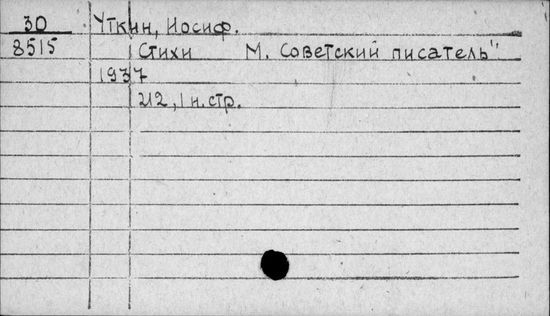 30 Уткин, Иосиф.
8515 Стихи М. Советский писатель"
1937
212, 1 н. стр.